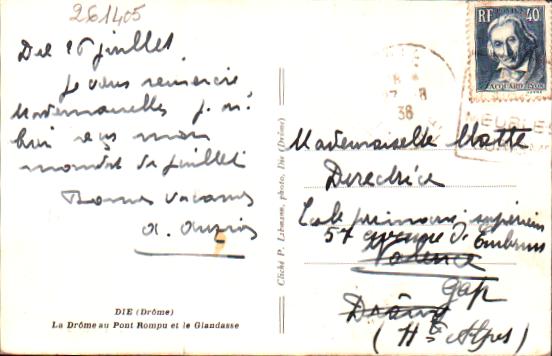 261405
Die 26 juillet
Je vous remercie
Mesdemoiselles j'ai
reçu mon
mandat de juillet
Bonnes vacances
DIE (Drôme)
La Drôme au Pont Rompu et le Glandasse
Cliché P. Libmann, photo, Die (Drôme)
RF
40c
JACQUARD LYON
38
Mademoiselle Motte
Directrice
Ecole primaire supérieure
57 avenue d'Embrun
Valence
Gap
Drôme
(Htes Alpes)